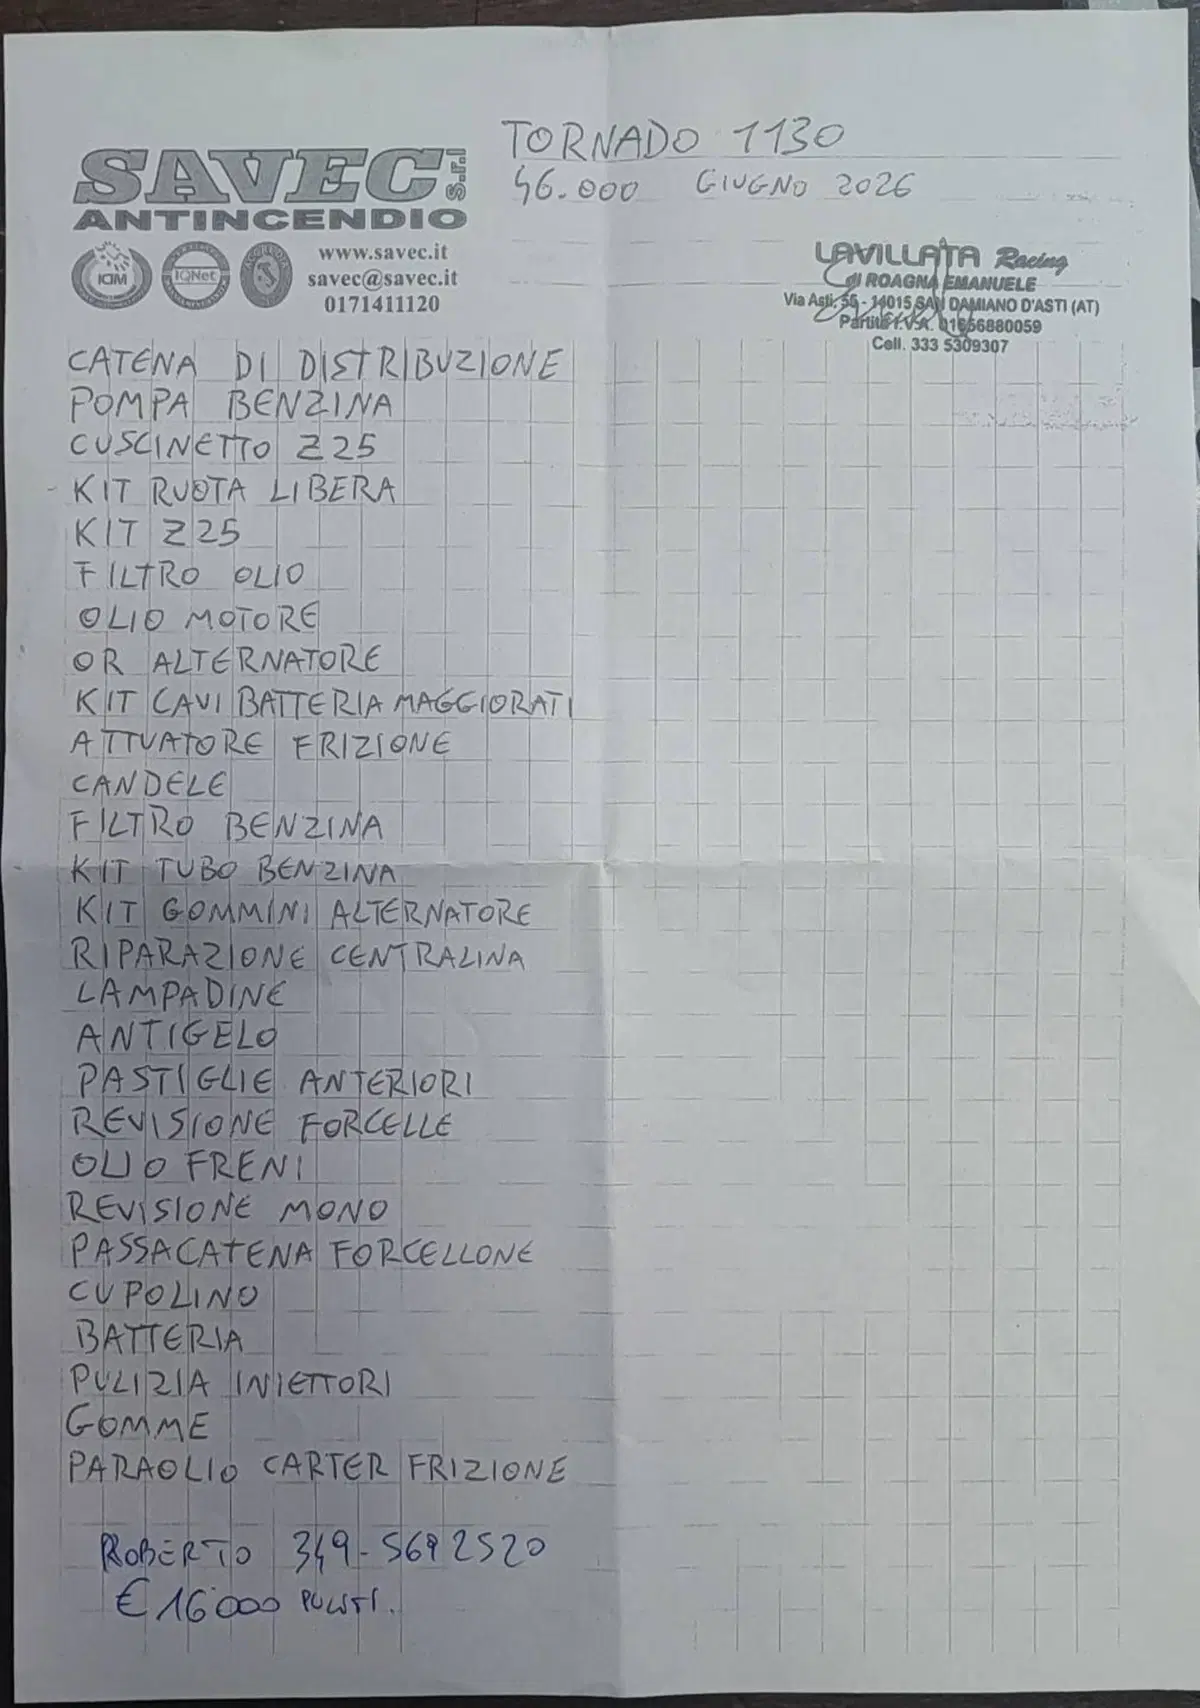 TORNADO 1130
46.000 GIUGNO 2026
SAVEC s.r.l
ANTINCENDIO
ICIM IQNet
www.savec.it
savec@savec.it
0171411120
LAVILLATA Racing
di ROAGNA EMANUELE
Via Asti, 56 - 14015 SAN DAMIANO D'ASTI (AT)
Partita I.V.A. 01656880059
Cell. 333 5309307
CATENA DI DISTRIBUZIONE
POMPA BENZINA
CUSCINETTO Z25
- KIT RUOTA LIBERA
KIT Z25
FILTRO OLIO
OLIO MOTORE
OR ALTERNATORE
KIT CAVI BATTERIA MAGGIORATI
ATTUATORE FRIZIONE
CANDELE
FILTRO BENZINA
KIT TUBO BENZINA
KIT GOMMINI ALTERNATORE
RIPARAZIONE CENTRALINA
LAMPADINE
ANTIGELO
PASTIGLIE ANTERIORI
REVISIONE FORCELLE
OLIO FRENI
REVISIONE MONO
PASSACATENA FORCELLONE
CUPOLINO
BATTERIA
PULIZIA INIETTORI
GOMME
PARAOLIO CARTER FRIZIONE
ROBERTO 349-5692520
€ 16000 PULITI.